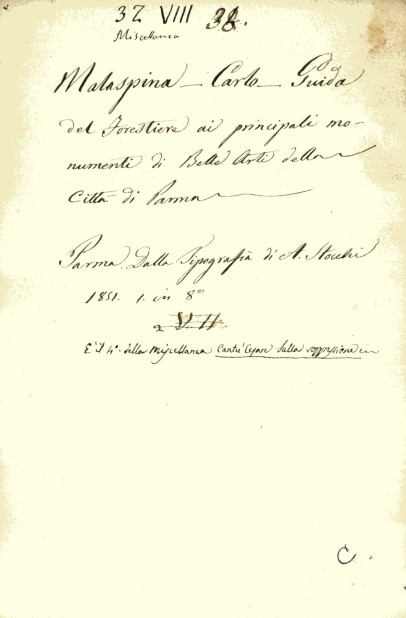 32 VIII 38.
Miscellanea
Malaspina - Carlo - Guida
del Forestiere ai principali mo-
numenti di Belle Arti della
Città di Parma
Parma. Dalla Tipografia di A. Stocchi
1851. 1. in 8º
È il 4º della Miscellanea Cantù Cesare Sulla soppressione
C.